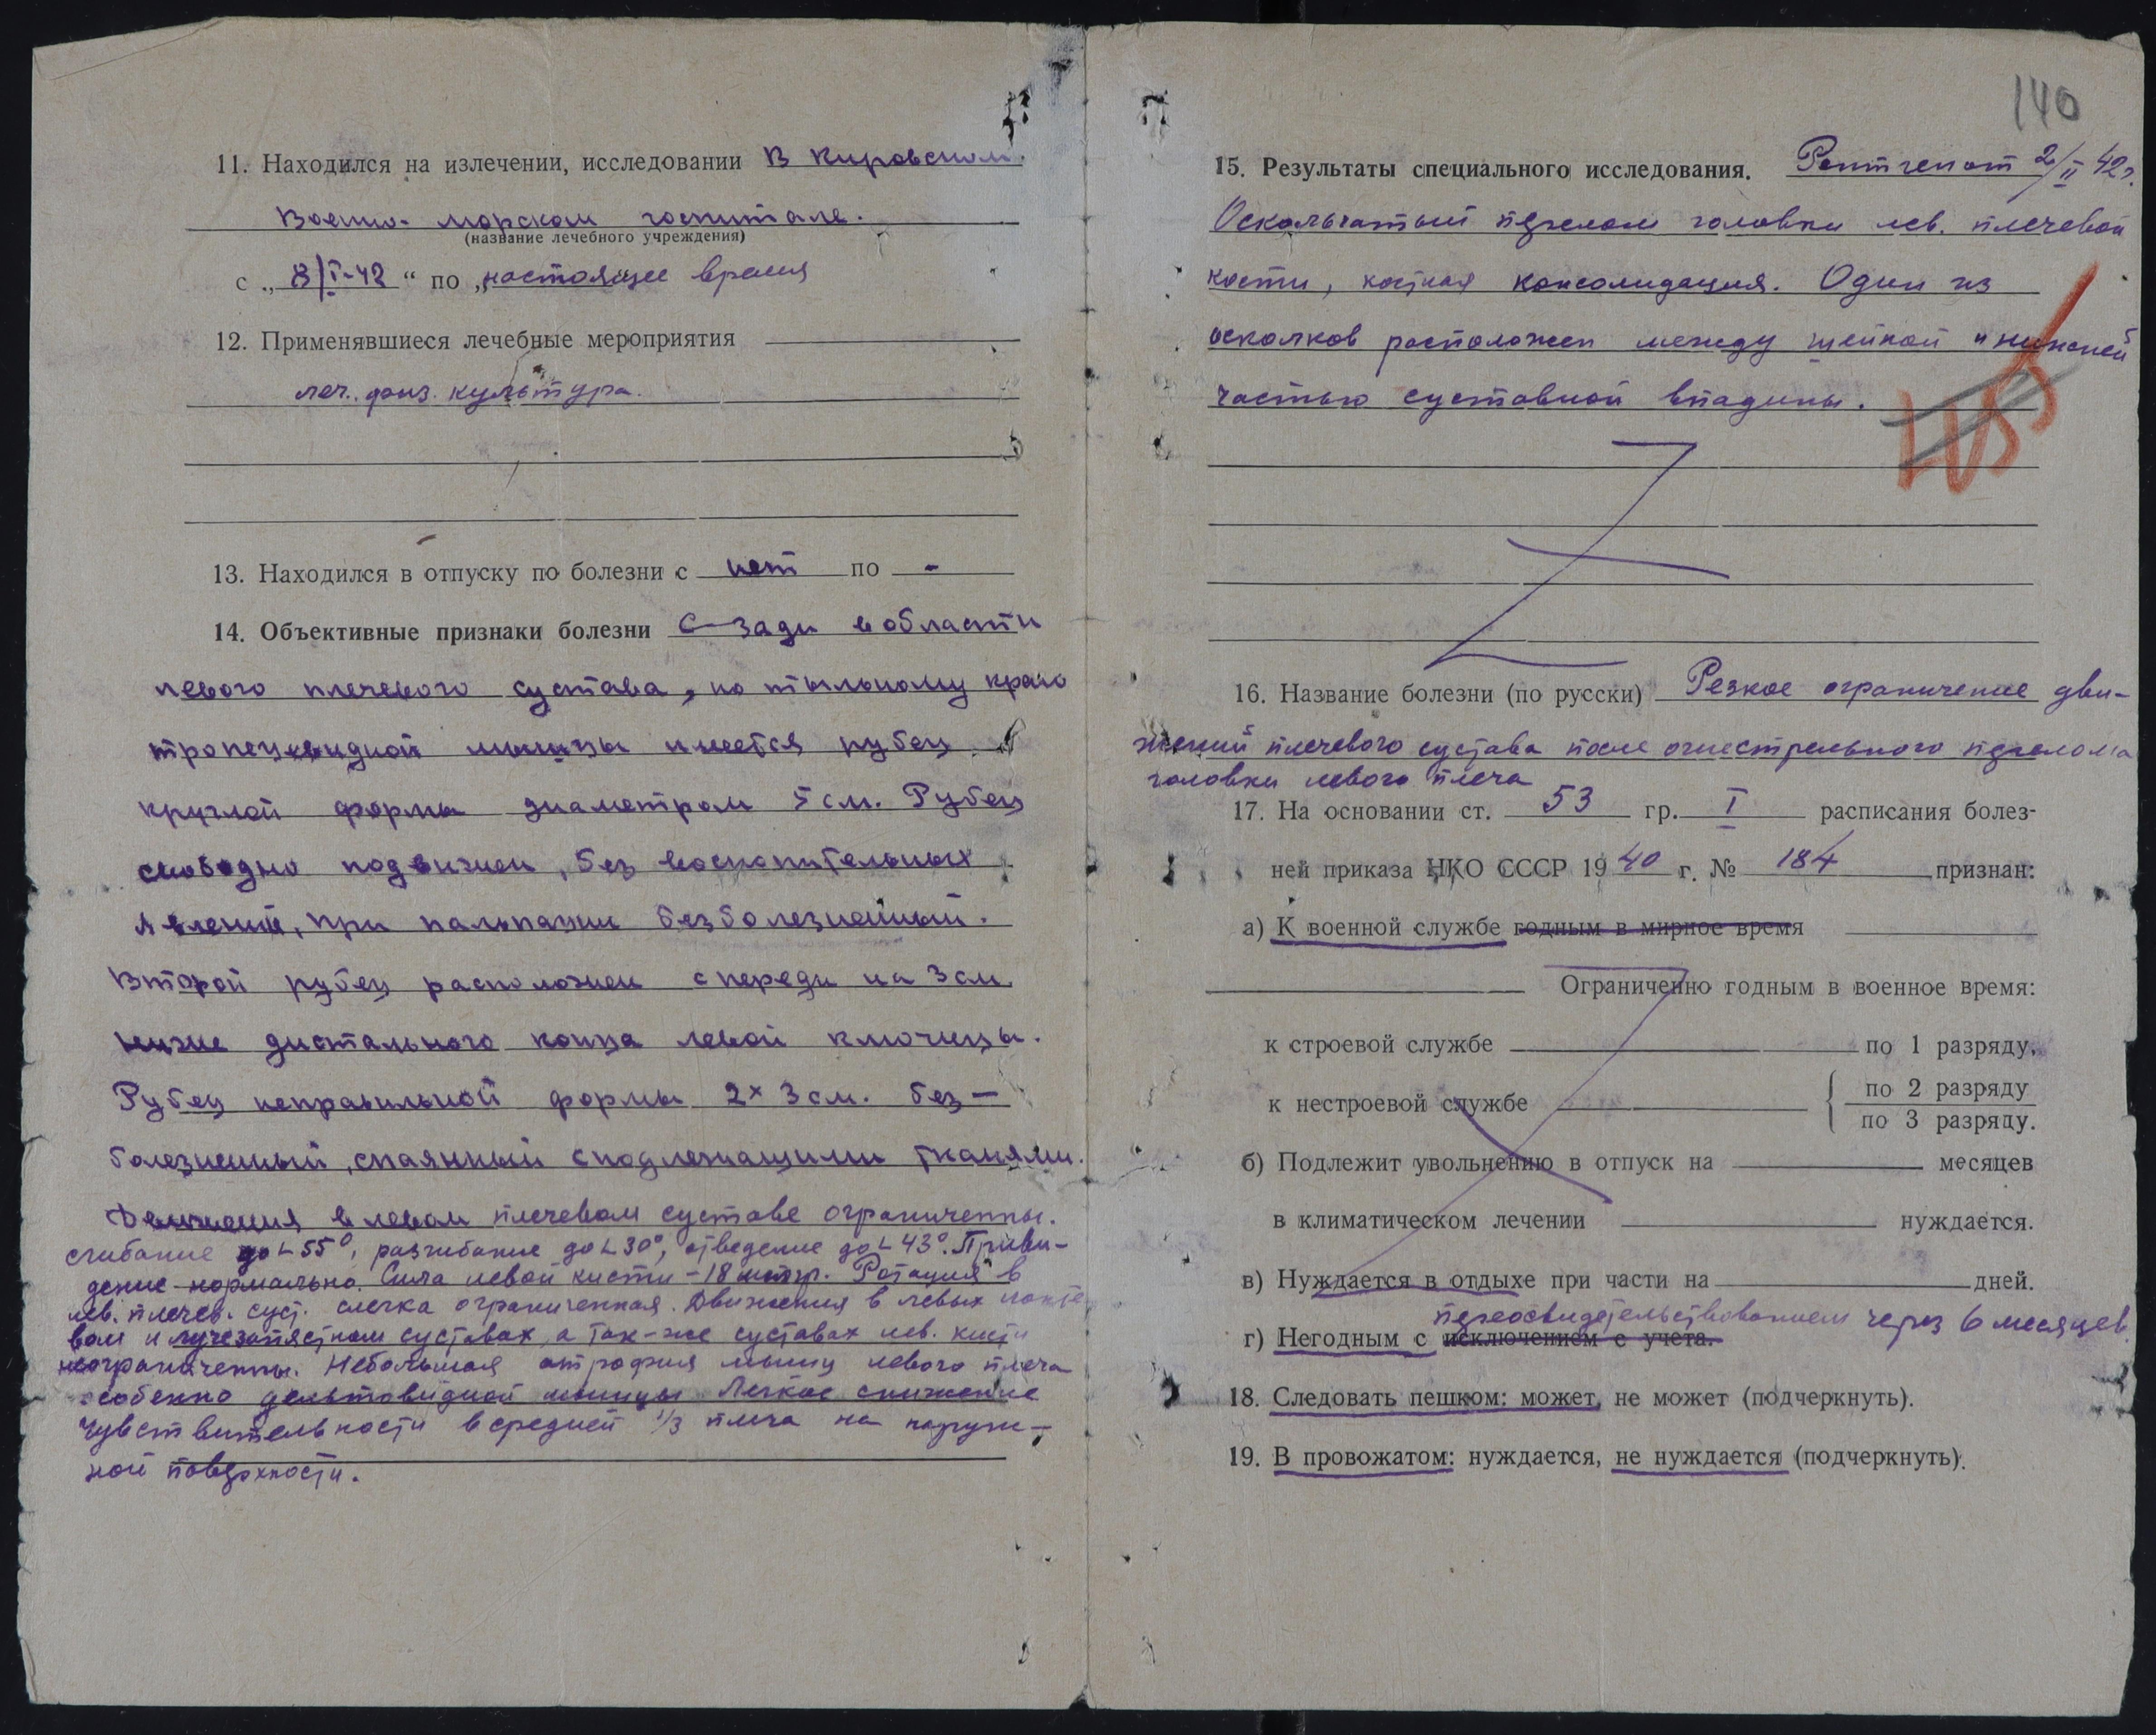 11. Находился на излечении, исследовании В Кировском
Военно-морском госпитале.
(название лечебного учреждения)
с „8/I-42“ по „настоящее время
12. Применявшиеся лечебные мероприятия
леч. физ. культура.
13. Находился в отпуску по болезни с нет по -
14. Объективные признаки болезни С-зади в области
левого плечевого сустава, по тыльному краю
трапецевидной мышцы имеется рубец
круглой формы диаметром 5 см. Рубец
свободно подвижен, без воспалительных
явлений, при пальпации безболезненный.
Второй рубец расположен спереди на 3 см.
ниже дистального конца левой ключицы.
Рубец неправильной формы 2×3 см. без-
болезненный, спаянный с подлежащими тканями.
Движения в левом плечевом суставе ограниченны.
сгибание до L 55°, разгибание до L 30°, отведение до L 43°. Приве-
дение нормально. Сила левой кисти - 18 Ротация в
лев. плечев. суст. слегка ограниченная. Движения в левых локте
вом и лучезапястном суставах, а так-же суставах лев. кисти
неограниченны. Небольшая атрофия мышц левого плеча
особенно дельтовидной мышцы Легкое снижение
чувствительности в средней 1/3 плеча на наруж-
ной поверхности.
140
15. Результаты специального исследования. Рентген от 2/II 42 г.
Оскольчатый перелом головки лев. плечевой
кости, костная консолидация. Один из
осколков расположен между шейкой и нижней
частью суставной впадины.
16. Название болезни (по русски) Резкое ограничение дви-
жений плечевого сустава после огнестрельного перелома
головки левого плеча
17. На основании ст. 53 гр. I расписания болез-
ней приказа НКО СССР 1940 г. № 184 признан:
а) К военной службе годным в мирное время
Ограниченно годным в военное время:
к строевой службе по 1 разряду.
к нестроевой службе { по 2 разряду
по 3 разряду.
б) Подлежит увольнению в отпуск на месяцев
в климатическом лечении нуждается.
в) Нуждается в отдыхе при части на дней.
переосвидетельствованием через 6 месяцев.
г) Негодным с исключением с учета.
18. Следовать пешком: может, не может (подчеркнуть).
19. В провожатом: нуждается, не нуждается (подчеркнуть).